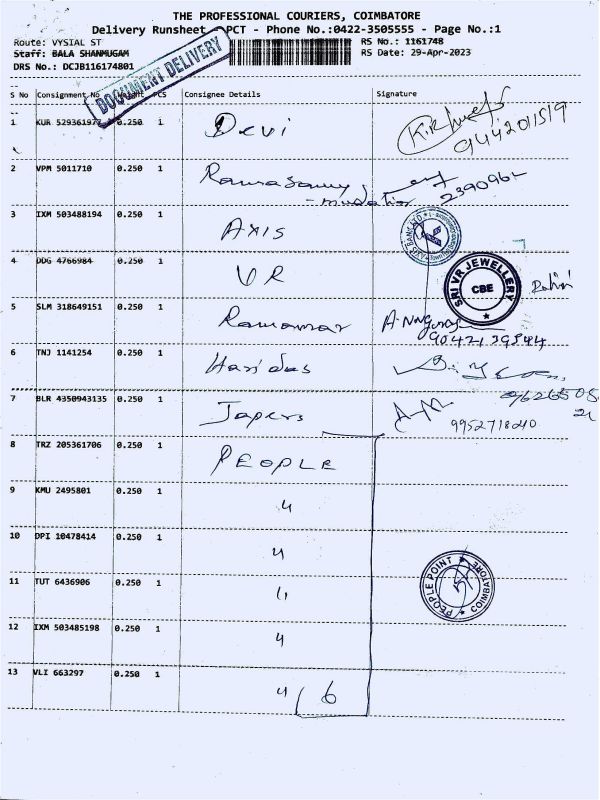 THE PROFESSIONAL COURIERS, COIMBATORE
Delivery Runsheet PCT - Phone No.:0422-3505555 - Page No.:1
Route: VYSIAL ST RS No.: 1161748
Staff: BALA SHANMUGAM RS Date: 29-Apr-2023
DRS No.: DCJB116174801
DOCUMENT DELIVERY
S No Consignment No Weight PCS Consignee Details Signature
1 KUR 0.250 1 Devi
9442011519
2 VPM 5011710 0.250 1 Ramasamy
2390962
3 IXM 503488194 0.250 1 AXIS
AXIS BANK LTD
4 DDG 4766984 0.250 1 VR
SRI VR JEWELLERY CBE
5 SLM 318649151 0.250 1
6 TNJ 1141254 0.250 1 Haridas
7 BLR 4350943135 0.250 1
9952718240
8 TRZ 205361706 0.250 1 PEOPLE
9 KMU 2495801 0.250 1 4
10 DPI 10478414 0.250 1 4
11 TUT 6436906 0.250 1
PEOPLE POINT COIMBATORE
12 IXM 503485198 0.250 1 4
13 VLI 663297 0.250 1 4 6